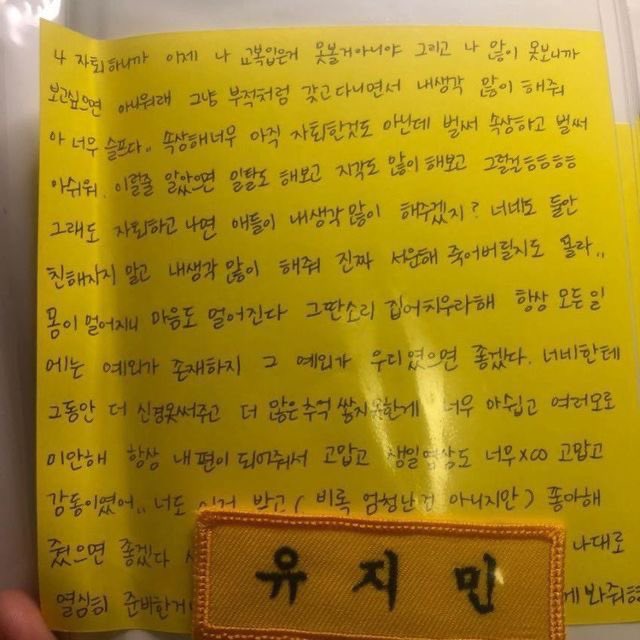 나 자퇴하니까 이제 나 교복입은거 못볼거아니야 그리고 나 많이 못보니까
보고싶으면 아니워래 그냥 부적처럼 갖고다니면서 내생각 많이 해줘
아 너무 슬프다.. 속상해너무 아직 자퇴한것도 아닌데 벌써 속상하고 벌써
아쉬워. 이럴줄 알았으면 일탈도 해보고 지각도 많이 해보고 그럴걸ㅎㅎㅎㅎ
그래도 자퇴하고 나면 애들이 내생각많이 해주겠지? 너네도 둘만
친해지지 말고 내생각 많이 해줘 진짜 서운해 죽어버릴지도 몰라..
몸이 멀어지니 마음도 멀어진다 그딴소리 집어치우라해 항상 모든일
에는 예외가 존재하지 그 예외가 우리였으면 좋겠다. 너네한테
그동안 더 신경못써주고 더 많은추억 쌓지못한게 너무 아쉽고 여러모로
미안해 항상 내편이 되어줘서 고맙고 생일영상도 너무x∞ 고맙고
감동이였어.. 너도 이거 받고 (비록 엄청난건 아니지만) 좋아해
줬으면 좋겠다 나대로
열심히 준비한거 게 봐줘ㅎ
유지민